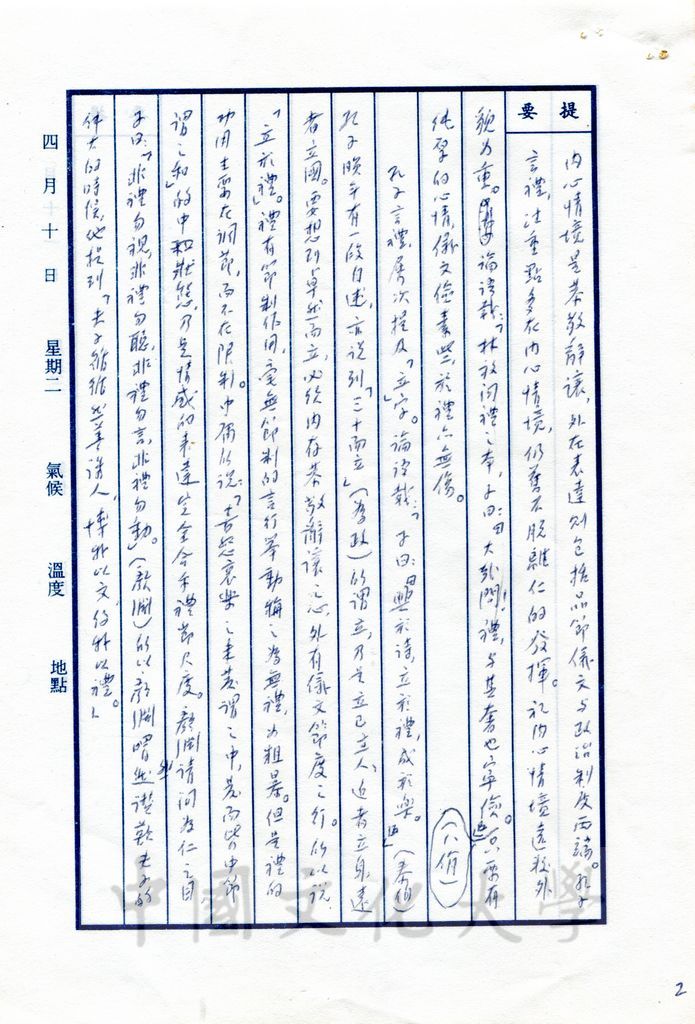 提要
內心情境是恭敬辭讓，外在表達則包括品節儀文与政治制度两端。孔子
言禮，注重點多在內心情境，仍舊不脫離仁的發揮。視內心情境遠較外
貌为重。論語載：「林放问禮之本，子曰：『大哉問！禮，与其奢也寧儉。』只要有
（八佾）
純厚的心情，儀文儉素些於禮亦無傷。
孔子言禮，屢次提及「立」字。論語載：「子曰：『興於詩，立於禮，成於樂。』」（泰伯）
孔子晚年有一段自述，亦說到「三十而立」（為政）所謂立，乃是立己立人，近者立身，遠
者立國。要想到卓然而立，必須內存恭敬辭讓之心，外有儀文節度之行。所以說：
「立於禮」。禮有節制作用，毫無節制的言行舉動稱之為無禮，为粗暴。但是禮的
功用主要在調節，而不在限制。中庸所說：「喜怒哀樂之未發謂之中，發而皆中節
謂之和」的中和狀態，乃是情感的表達完全合乎禮節尺度。顏淵請问为仁之目
子曰：「非禮勿視，非禮勿聽，非禮勿言，非禮勿動。」（顏淵）所以顏淵喟然讚歎夫子的
偉大的時候，他提到「夫子循循然善誘人，博我以文，約我以禮。」
四月十日 星期二 氣候 溫度 地點
中國文化大學
2